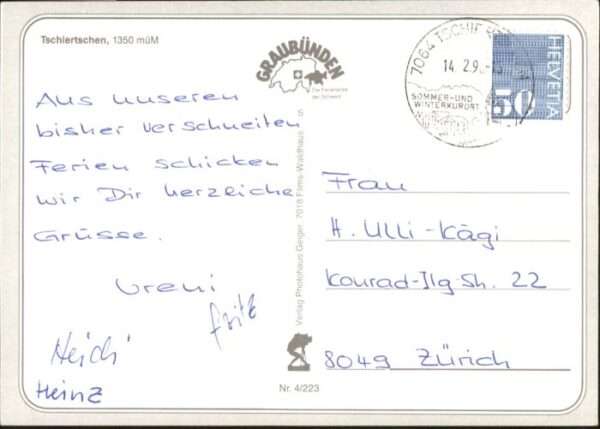 Tschiertschen, 1350 müM
GRAUBÜNDEN
Die Ferienecke
der Schweiz
7064 TSCHIERTSCHEN
14. 2. 9
SOMMER- UND
WINTERKURORT
HELVETIA
50
Aus unseren
bisher verschneiten
Ferien schicken
wir Dir herzliche
Grüsse.
Vreni
Fritz
Heidi
Heinz
Verlag Photohaus Geiger, 7018 Flims-Waldhaus
Frau
H. Ulli-Kägi
Konrad-Ilg-Str. 22
8049 Zürich
Nr. 4/223